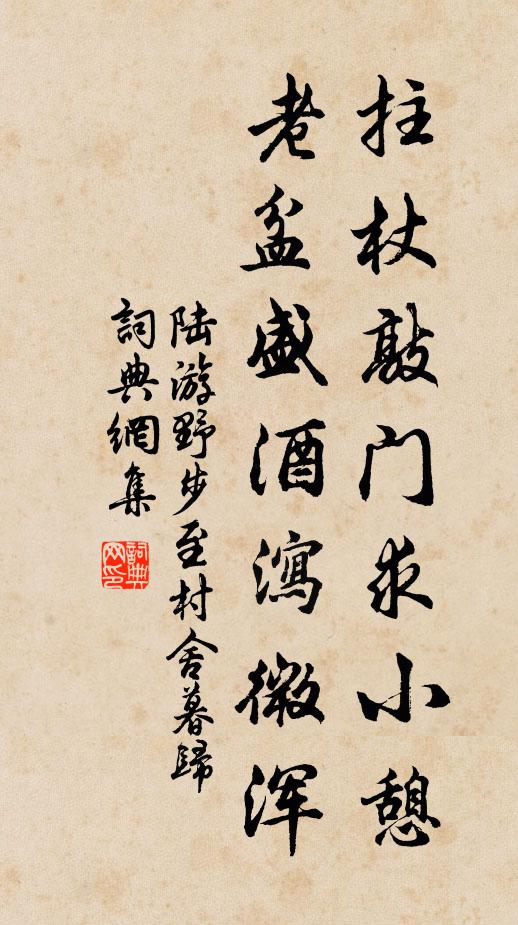 拄杖敲门求小憩
老盆盛酒瀉微浑
陆游野步至村舍暮歸
詞典網集
詞典網印